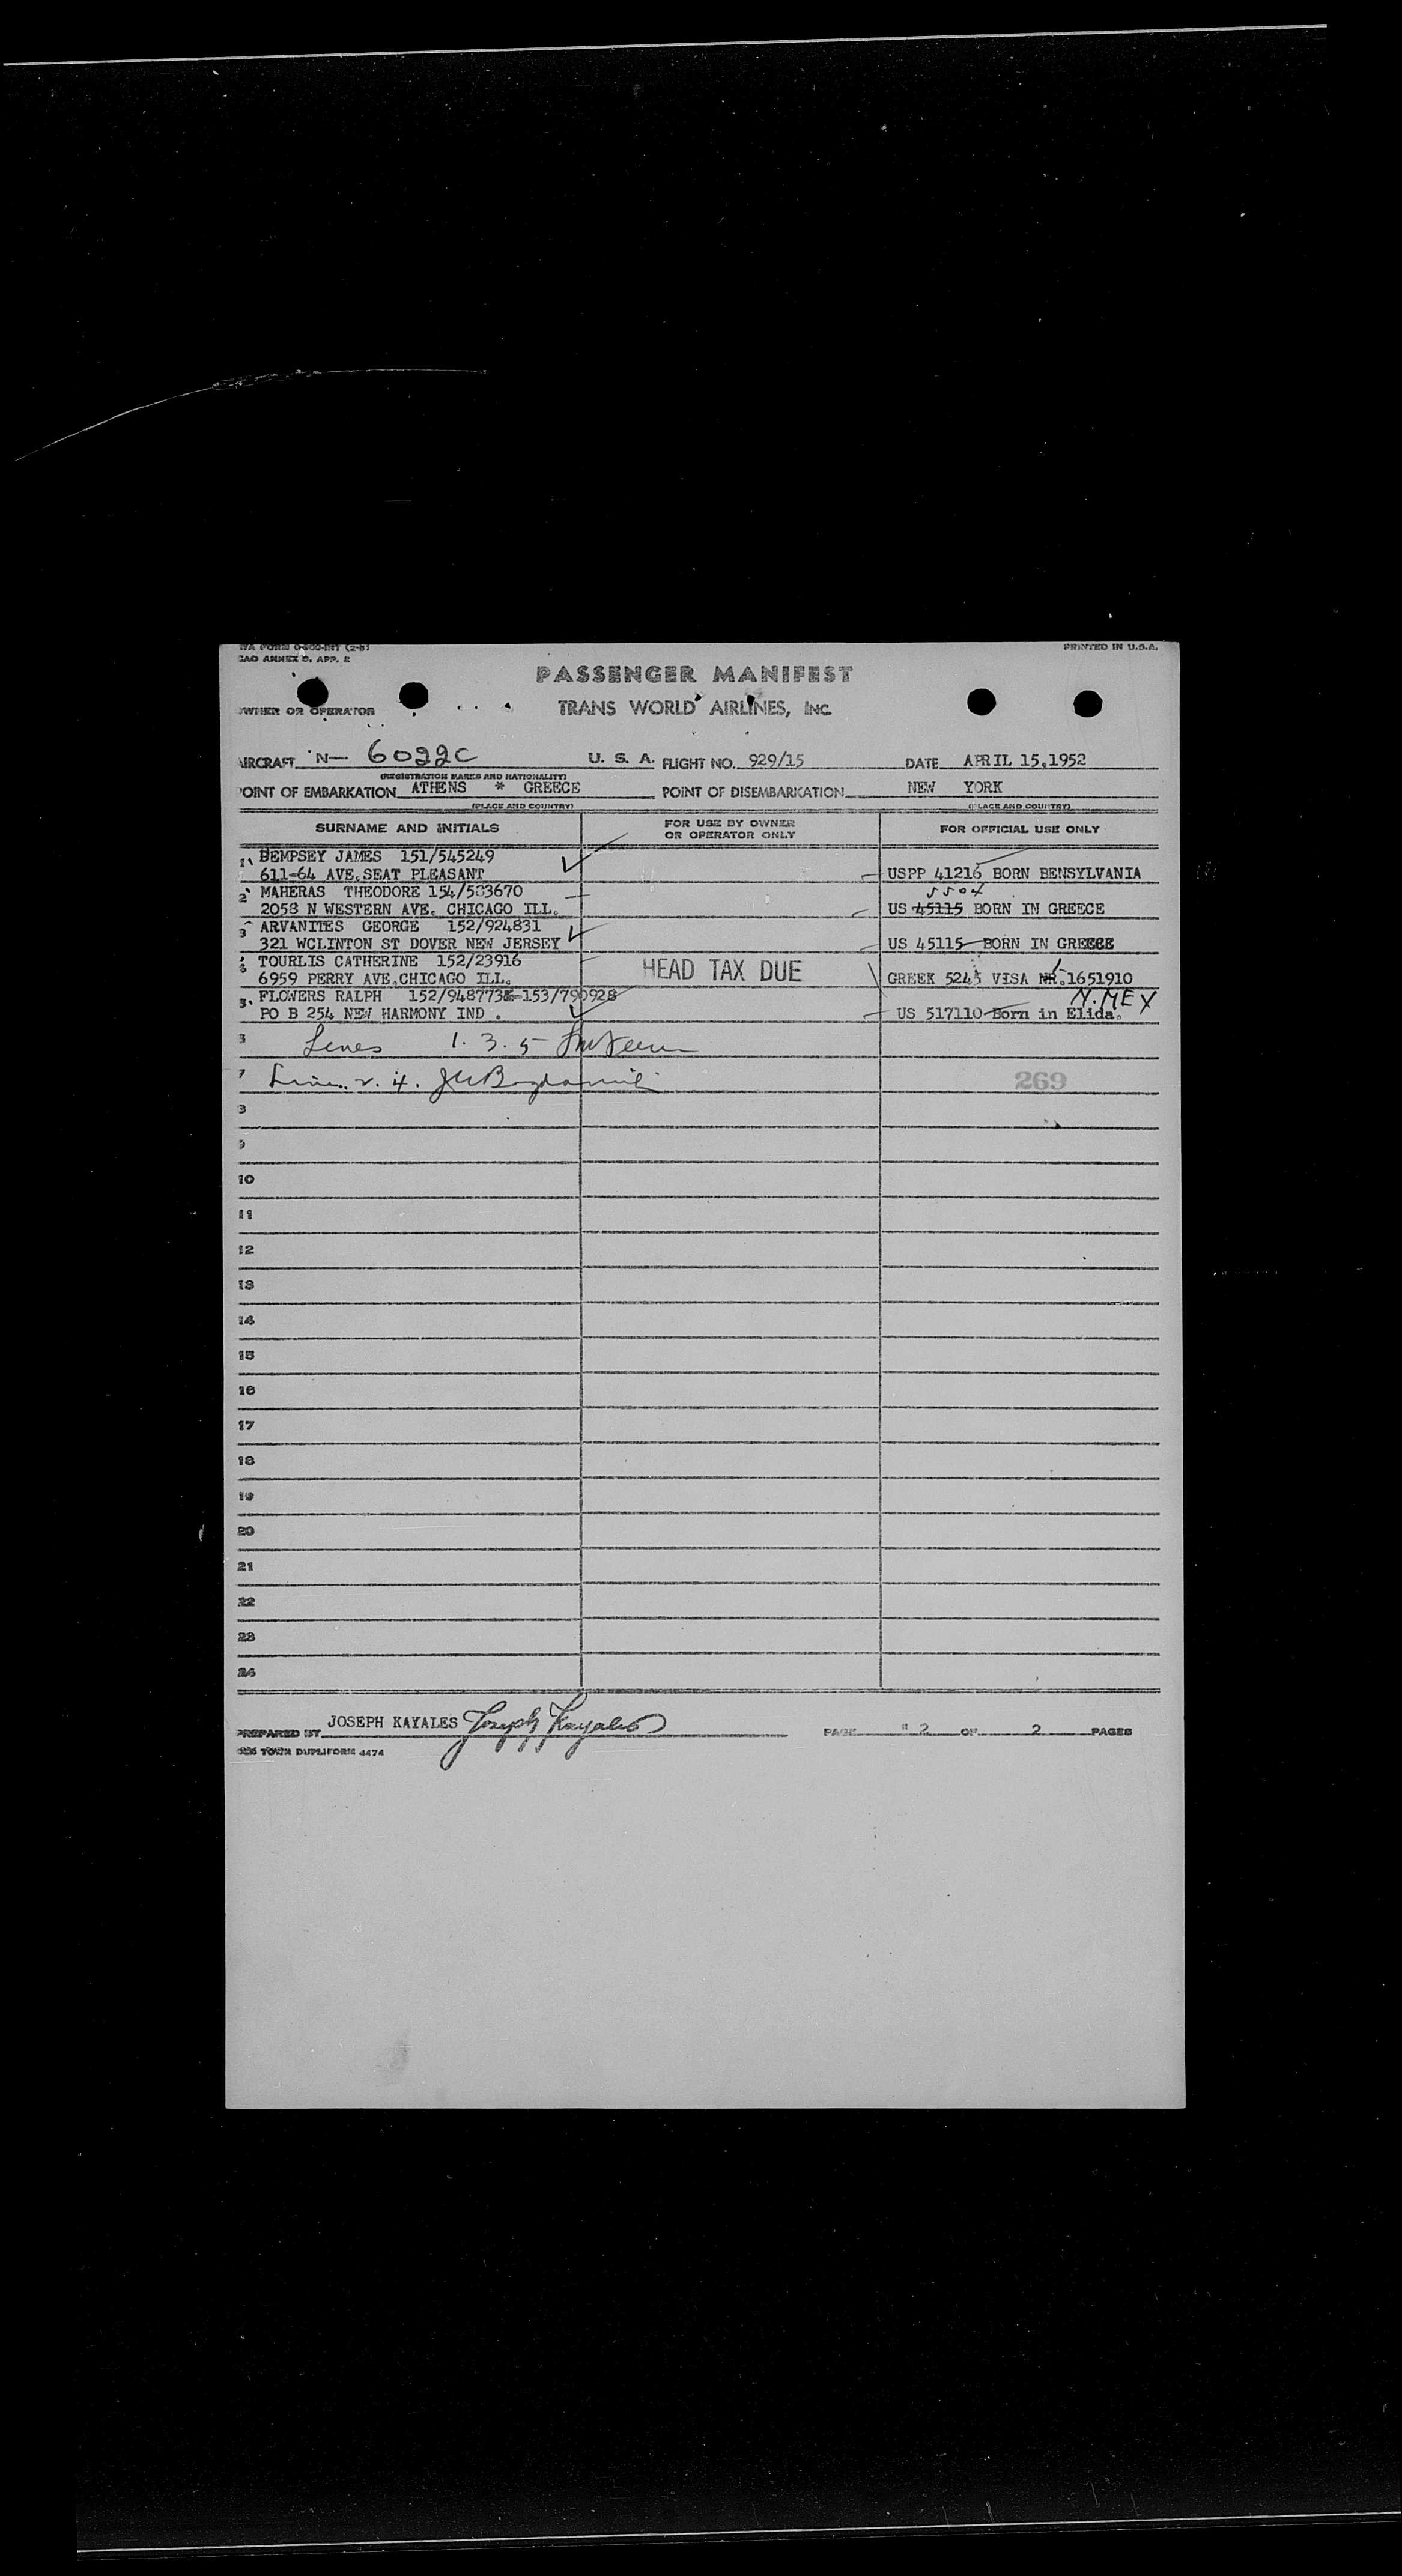 PRINTED IN U.S.A.
ANNEX 9, APP. 2
PASSENGER MANIFEST
OWNER OR OPERATOR TRANS WORLD AIRLINES, INC.
AIRCRAFT N- 6022C U. S. A. FLIGHT NO. 929/15 DATE APRIL 15.1952
(REGISTRATION MARKS AND NATIONALITY)
POINT OF EMBARKATION ATHENS * GREECE POINT OF DISEMBARKATION NEW YORK
(PLACE AND COUNTRY) (PLACE AND COUNTRY)
SURNAME AND INITIALS FOR USE BY OWNER OR OPERATOR ONLY FOR OFFICIAL USE ONLY
1 DEMPSEY JAMES 151/545249
611-64 AVE.SEAT PLEASANT USPP 41216 BORN BENSYLVANIA
2 MAHERAS THEODORE 154/503670 5504
2058 N WESTERN AVE. CHICAGO ILL. US 45115 BORN IN GREECE
3 ARVANITES GEORGE 152/924831
321 WCLINTON ST DOVER NEW JERSEY US 45115 BORN IN GREECE
TOURLIS CATHERINE 152/23916 HEAD TAX DUE
6959 PERRY AVE.CHICAGO ILL. GREEK VISA NR.1651910
FLOWERS RALPH N.MEX
PO B 254 NEW HARMONY IND . US 517110 Born in Elida.
Lines 1. 3. 5
7 2. 4. 269
9
10
11
12
13
14
15
16
17
18
19
20
21
22
23
24
PREPARED BY JOSEPH KAYALES Joseph Kayales PAGE 2 OF 2 PAGES
TOWN DUPLIFORM 4474